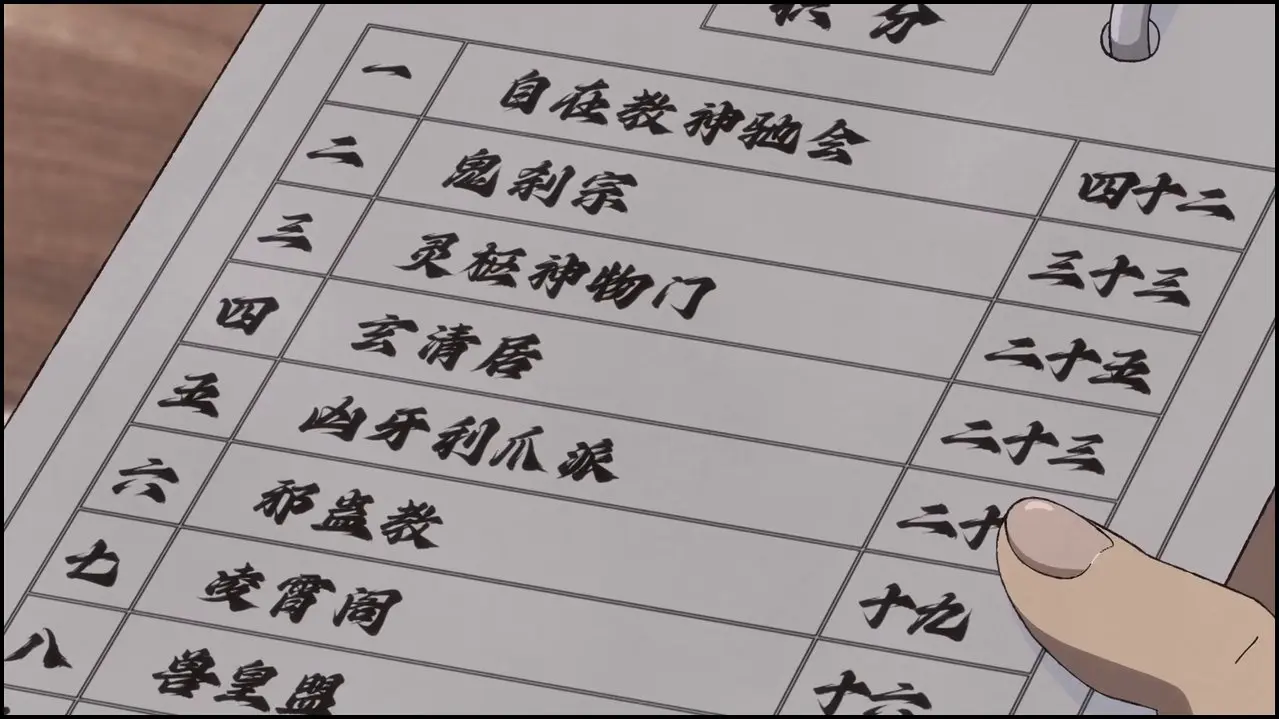 积分
一 自在教神驰会 四十二
二 鬼刹宗 三十三
三 灵柩神物门 二十五
四 玄清居 二十三
五 凶牙利爪派 二十
六 邪蛊教 十九
七 凌霄阁 十六
八 兽皇盟